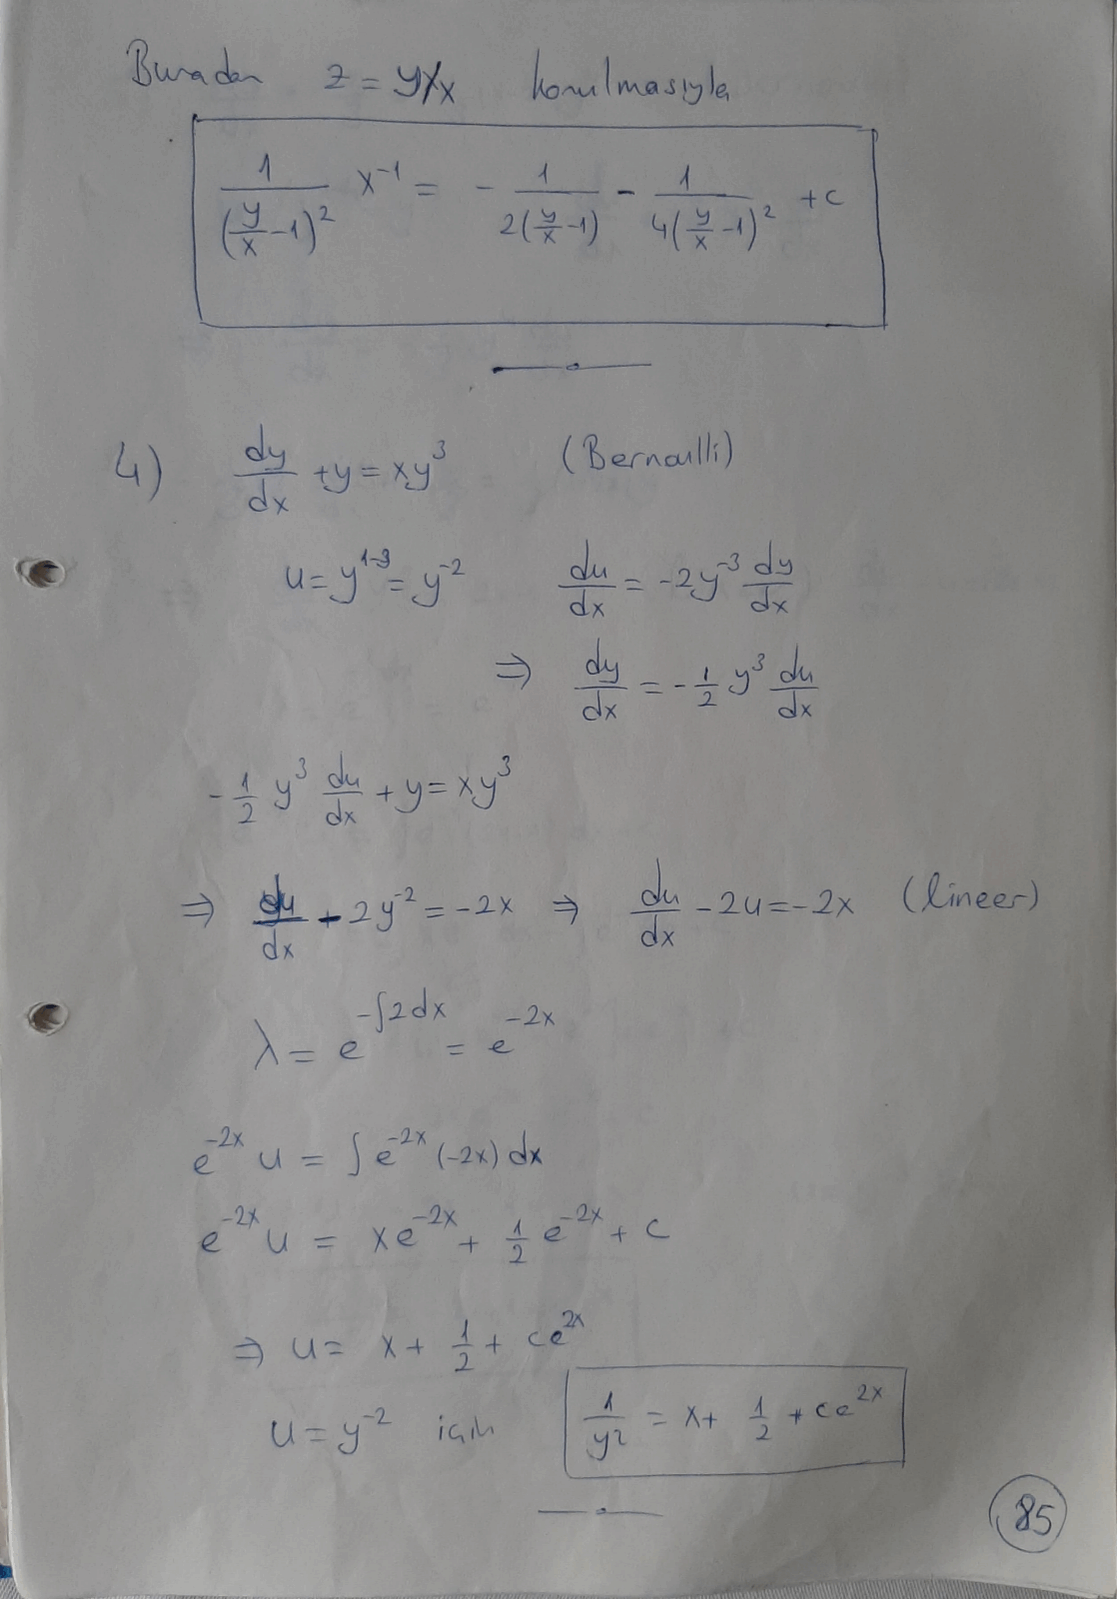 Buradan z = y/x konulmasıyla
\frac{1}{(\frac{y}{x}-1)^2} x^{-1} = - \frac{1}{2(\frac{y}{x}-1)} - \frac{1}{4(\frac{y}{x}-1)^2} + c
4) \frac{dy}{dx} + y = xy^3 (Bernoulli)
u = y^{1-3} = y^{-2} \frac{du}{dx} = -2y^{-3} \frac{dy}{dx}
⇒ \frac{dy}{dx} = -\frac{1}{2} y^3 \frac{du}{dx}
-\frac{1}{2} y^3 \frac{du}{dx} + y = xy^3
⇒ \frac{du}{dx} - 2y^{-2} = -2x ⇒ \frac{du}{dx} - 2u = -2x (lineer)
λ = e^{-∫2dx} = e^{-2x}
e^{-2x} u = ∫ e^{-2x} (-2x) dx
e^{-2x} u = xe^{-2x} + \frac{1}{2} e^{-2x} + c
⇒ u = x + \frac{1}{2} + ce^{2x}
u = y^{-2} için \frac{1}{y^2} = x + \frac{1}{2} + ce^{2x}
85